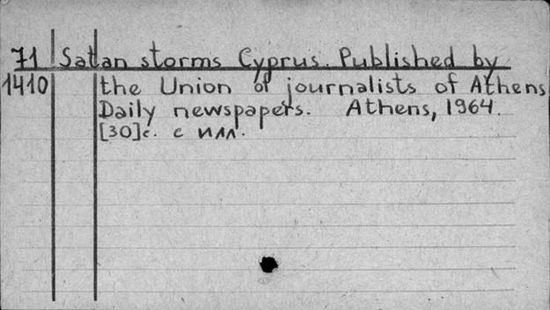 71 Satan storms Cyprus. Published by
1410 the Union of journalists of Athens
Daily newspapers. Athens, 1964.
[30]с. с илл.